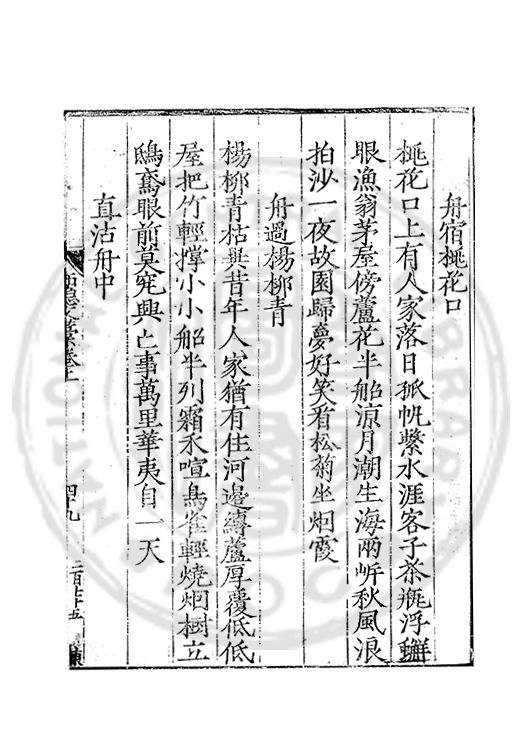 舟宿桃花口
桃花口上有人家落日孤帆繫水涯客子茶甌浮蠏
眼漁翁茅屋傍蘆花半船凉月潮生海兩岍秋風浪
拍沙一夜故園歸夢好笑看松菊坐烟霞
舟過楊柳青
楊柳青枯與昔年人家猶有住河邊縛蘆厚覆低低
屋把竹輕撑小小船半列霜禾喧鳥雀輕燒烟樹立
鴟鳶眼前莫究興亡事萬里華夷自一天
直沽舟中
四九
二百七十五